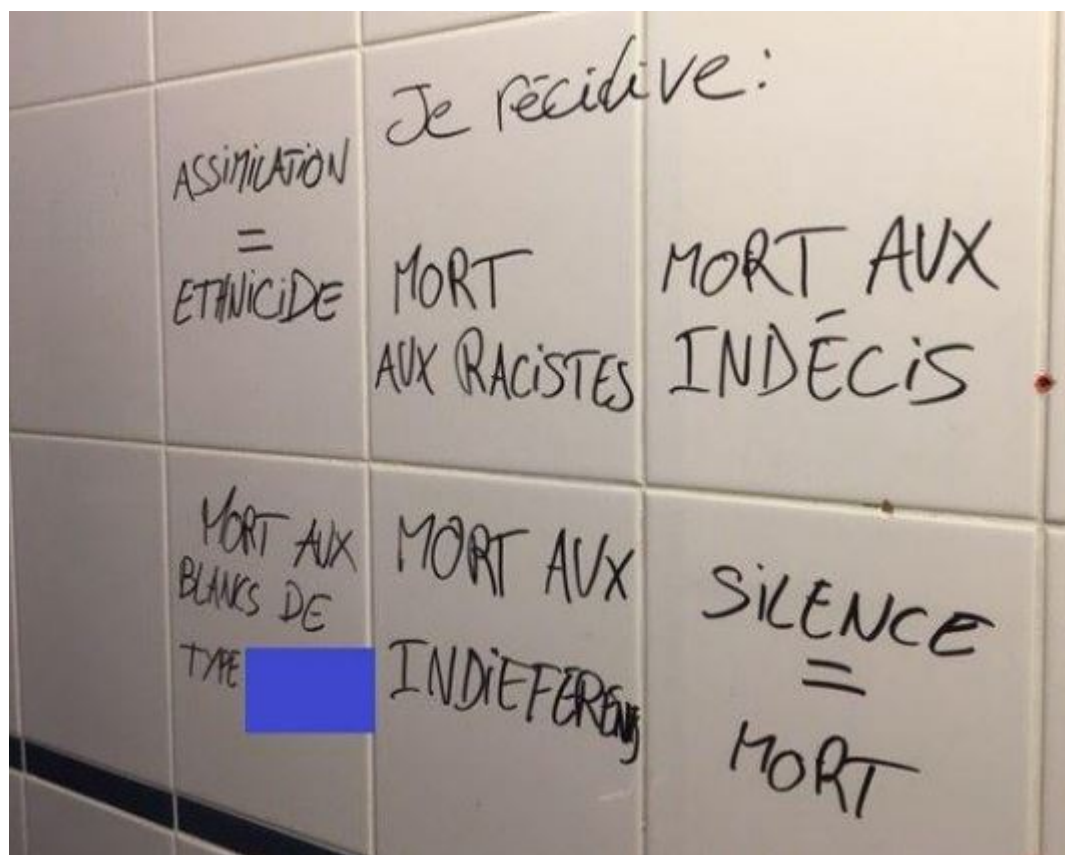 Je récidive:
ASSIMILATION
=
ETHNICIDE
MORT
AUX RACISTES
MORT AUX
INDÉCIS
MORT AUX
BLANCS DE
TYPE
MORT AUX
INDIFFERENTS
SILENCE
=
MORT